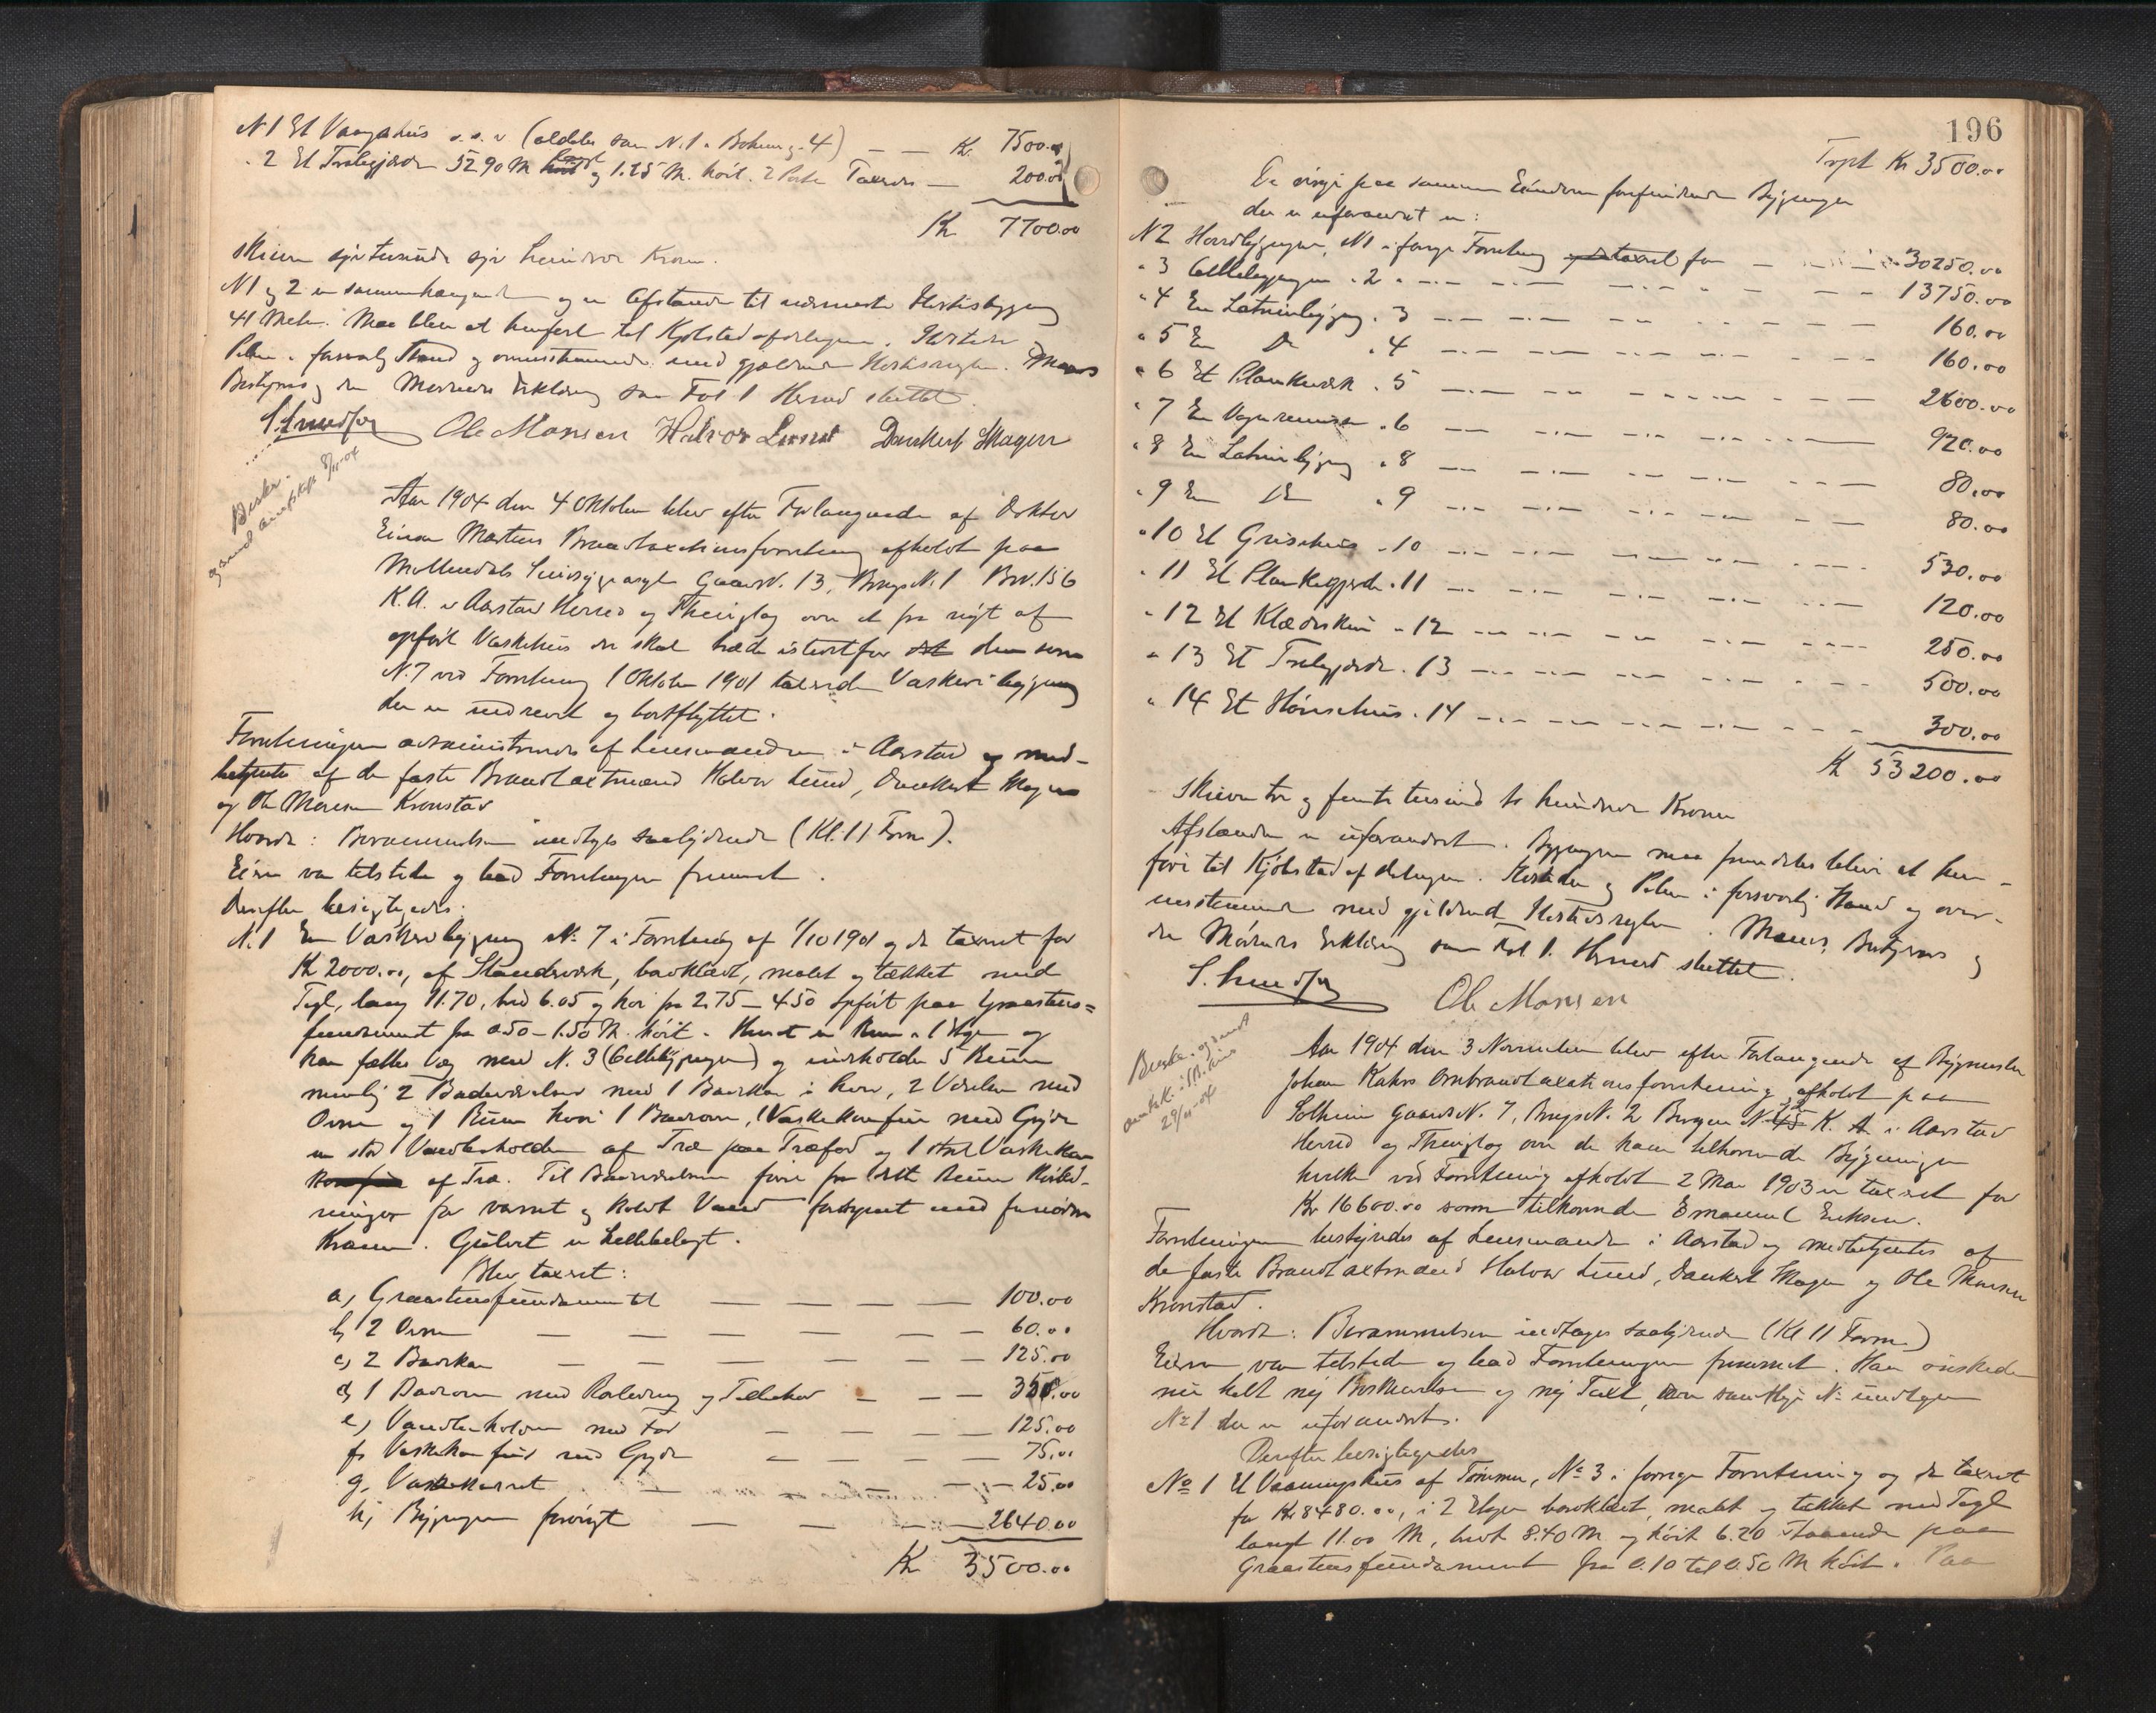 N 1 Et Vaaghus o.s.v (aldeles som N. 1 i Bohus g. 4) — — Kr. 7500.00
" 2 Et Trægjærde 52.90 M langt og 1.25 M. høit. 2 Porte Taxeres — 200.00
Kr 7700.00
Skriver syv tusinde syv hundrede Kroner.
N 1 og 2 er sammenhængende og er Afstanden til nærmeste Ildstedsbygning
41 Meter. Maa blive at henføre til Kjøbstadafdelingen. Ildsteder
Piber i forsvarlig Stand og overensstemmende med gjældende Ildstedsregler. Mænds
Bestyrers og Mænds Erklæring som Fol 1 Herved sluttet
S. Amundsen Ole Monsen Halvor Lund Dankert Skagen
Beskr.
gammel amtskp. 8/11-04
Aar 1904 den 4 Oktober blev efter Forlangende af Doktor
Einar Martens Brandtaxationsforretning afholdt paa
Møllendals Sindsygeasyl Gaards N. 13, Brugs N. 1 Br. N. 156
K.A. i Aarstad Herred og Thinglag over et fra nyt af
opført Vaskehus der skal træde istedetfor den som
N. 7 ved Forretning 1 Oktober 1901 taxerede Vaskeribygning
der er nedrevet og bortflyttet.
Forretningen administreredes af Lensmanden i Aarstad og med-
betjentes af de faste Brandtaxtmænd Halvor Lund, Dankert Skagen
og Ole Monsen Kronstad
Hvorda: Berammelsen indtages saalydende (Kl. 11 Form).
Eieren var tilstede og bad Forretningen fremmet.
Derefter besigtigedes:
N. 1 En Vaskeribygning N: 7 i Forretning af 1/10 1901 og da taxeret for
Kr 2000.00, af Standværk, bordklædt, malet og tækket med
Tegl, lang 11.70, bred 6.05 og høi fra 2.75 – 4.50 opført paa Graastens=
fundament fra 0.50 – 1.50 M. høit. Huset er kun i 1 Etage og
har fælles Væg med N. 3 (Cellebygningen) og indeholder 5 Rum
nemlig 2 Badeværelser med 1 Badekar i hver, 2 Værelser med
Ovne og 1 Rum hvori 1 Badeovn, 1 Vaskekomfur med Gryde
en stor Vandbeholder af Træ paa Træfod og 1 stort Vaskekar
af Træ. Til Badeværelserne fører fra dette Rum Rørled-
ninger for varmt og koldt Vand forsynet med fornødne
Kraner. Gulvet er hellebelagt.
Blev taxeret:
a, Graastensfundamentet — — — — — 100.00
b, 2 Ovne — — — — — — 60.00
c, 2 Badekar — — — — — — 125.00
d, 1 Badeovn med Rørledning og Tilbehør — — — 350.00
e, Vandbeholderen med Fod — — — — 125.00
f, Vaskekomfur med Gryde — — — — 75.00
g, Vaskekarret — — — 25.00
h, Bygningen forøvrigt — — — — 2640.00
Kr 3500.00
196
Trpt Kr 3500.00
De øvrige paa samme Eiendom forefindende Bygninger
der er uforandret er:
N 2 Hovedbygningen, N 1 i forrige Forretning taxeret for — — — 30250.00
" 3 Cellebygningen " 2 " — — — — — — 13750.00
" 4 En Latrinbygning " 3 — — — — — 160.00
" 5 En Do " 4 — — — — — 160.00
" 6 Et Plankeværk " 5 — — — — — 2600.00
" 7 En Vognremise " 6 — — — — — 920.00
" 8 En Latrinbygning " 8 — — — — — 80.00
" 9 En Do " 9 — — — — — 80.00
" 10 Et Grisehus " 10 — — — — — 530.00
" 11 Et Plankegjærde " 11 — — — — — 120.00
" 12 Et Klædeskur " 12 — — — — — 250.00
" 13 Et Trægjærde " 13 — — — — — 500.00
" 14 Et Hønsehus " 14 — — — — — 300.00
Kr 53200.00
Skriver tre og femti tusind to hundrede Kroner
Afstanden er uforandret. Bygningen maa fremdeles blive at hen-
føre til Kjøbstadafdelingen. Ildsteder og Piber i forsvarlig Stand og over-
ensstemmende med gjældende Ildstedsregler. Mænds, Bestyrers og
Erklæring som Fol 1. Herved sluttet.
S. Amundsen Ole Monsen
Beskr. og sendt
29/11-04
Aar 1904 den 3 November blev efter Forlangende af Bygmester
Johan Kahrs Ombrandtaxationsforretning afholdt paa
Solheim Gaards N. 7, Brugs N. 2 Bergen N. K. A. i Aarstad
Herred og Thinglag over de ham tilhørende Bygninger
hvilke ved Forretning afholdt 2 Mai 1903 er taxeret for
Kr 16600.00 som tilhørende Emanuel Eriksen.
Forretningen bestyredes af Lensmanden i Aarstad og medbetjentes af
de faste Brandtaxtmænd Halvor Lund, Dankert Skagen og Ole Monsen
Kronstad.
Hvorda: Berammelsen indtages saalydende (Kl 11 Form)
Eieren var tilstede og bad Forretningen fremmet. Han ønskede
nu helt ny Beskrivelse og ny Taxt, over samtlige N: undtagen
No 1 der er uforandret.
Derefter besigtigedes
No 1 Et Vaaningshus af Tømmer, No 3 i forrige Forretning og da taxeret
for Kr 8480.00, i 2 Etager bordklædt, malet og tækket med Tegl
langt 11.00 M, bredt 8.40 M og høit 6.20 staaende paa
Graastensfundament fra 0.10 til 0.50 M høit. Paa